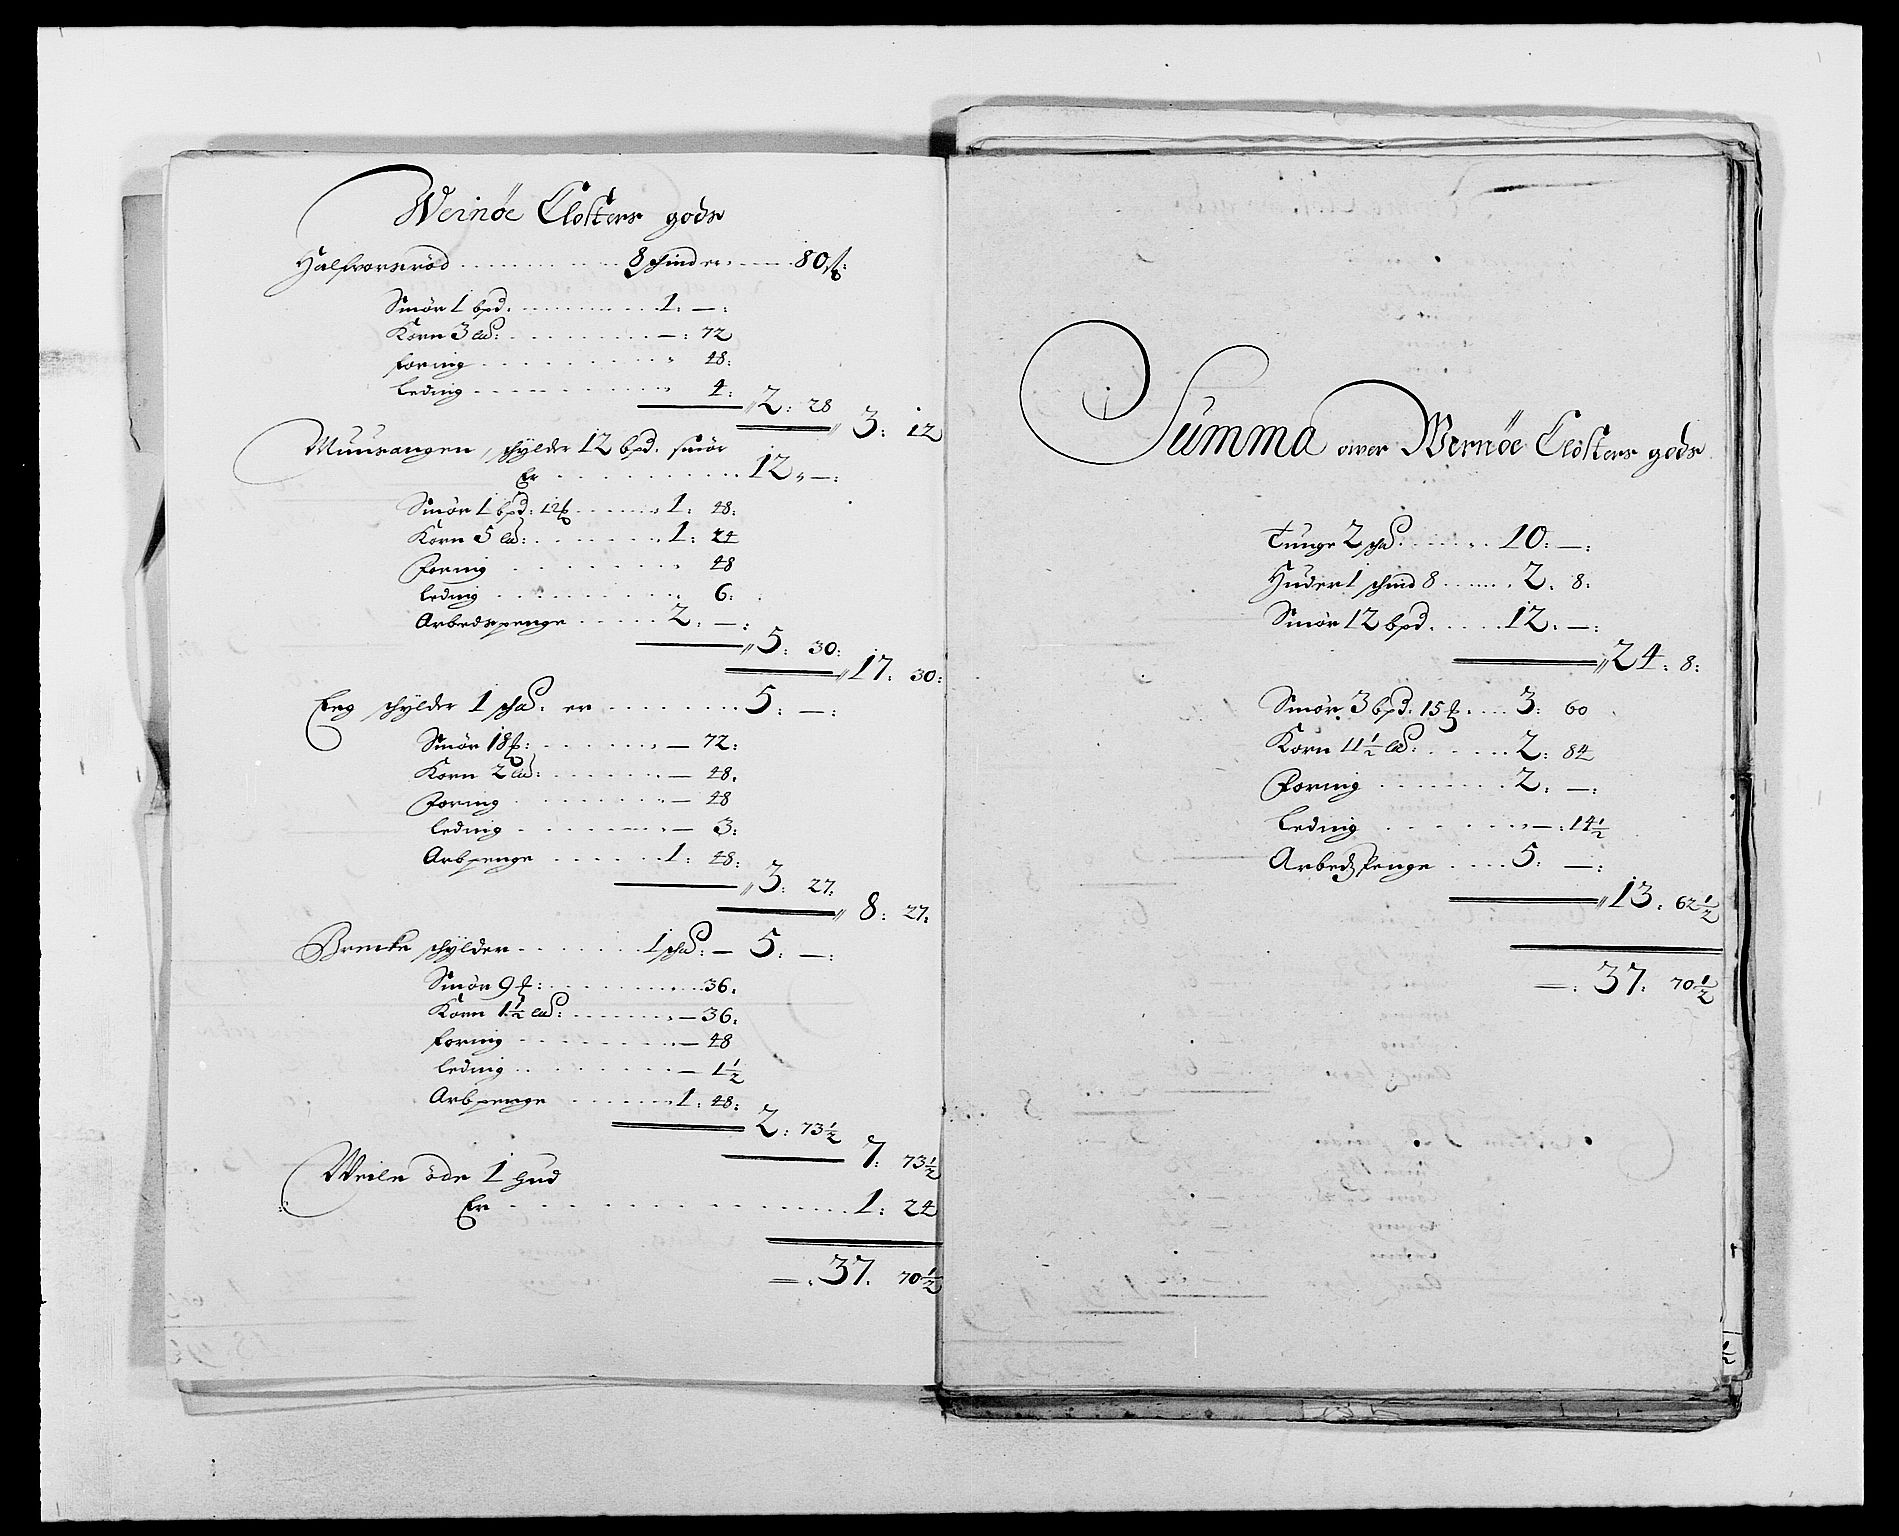 Wernøe Closters gods
Halfvorsrød . . . . . . 8 schinder . . . . 80 ß:
Smör 1 bpd. . . . . . 1: —:
Korn 3 lad: . . . . . —: 72
foring . . . . . " 48:
leding . . . . . " 4:
" 2: 28
" 3: 12
Muusangen, schylder 12 bpd. smör
Er . . . . . 12 " —:
Smör 1 bpd: 12 ₶ . . . . 1: 48:
Korn 5 lad: . . . . . 1: 24
Foring . . . . . " 48
leding . . . . . " 6:
Arbedspenge . . . . . 2. —:
" 5: 30:
" 17: 30:
Eeg schylder 1 schd. er . . . . . 5: —:
Smör 18 ₶: . . . . . — 72:
Korn 2 lad: . . . . . — 48.
Foring . . . . . — 48
leding . . . . . — 3:
Arbpenge . . . . . 1: 48:
" 3: 27:
" 8: 27.
Brecke schylder . . . . . 1 schd: — 5: —:
Smör 9 ₶: . . . . . 36.
Korn 1½ lad: . . . . . — 36:
foring . . . . . — 48
leding . . . . . — 1½
Arbpenge . . . . . 1: 48:
2: 73½
7: 73½
öde 1 hud
Er . . . . . 1: 24
—. 37. 70½
Summa over Wernøe Closters gods
Tunge 2 schd . . . . . 10: —:
Huder 1 schind 8 . . . . . 2. 8:
Smör 12 bpd. . . . . 12. —:
" 24: 8:
Smör. 3 bpd. 15 ₶ . . . . 3: 60
Korn 11½ lad: . . . . . 2: 84
Foring . . . . . 2. —:
leding . . . . . " —: 14½
Arbedspenge . . . . 5: —:
" 13. 62½
—: 37: 70½